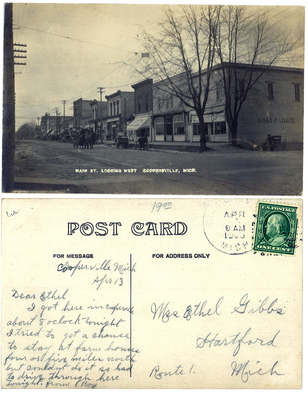 MAIN ST. LOOKING WEST COOPERSVILLE, MICH.
1900
POST CARD
FOR MESSAGE
FOR ADDRESS ONLY
APR
9 AM
MICH
U.S. POSTAGE
ONE CENT
Cooperville Mich
Apr 13
Dear Ethel
I got here in
about 8 oclock tonight
I tried to get a chance
to stay at farm house
four or five miles north
but couldnt do it so had
to drive through here
tonight. from
Miss Ethel Gibbs
Hartford
Route 1. Mich